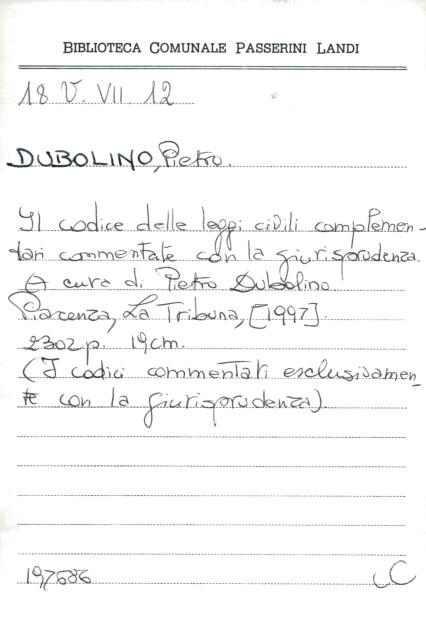 BIBLIOTECA COMUNALE PASSERINI LANDI
18 V. VII 12
DUBOLINO, Pietro.
Il codice delle leggi civili complemen-
tari commentate con la giurisprudenza.
A cura di Pietro Dubolino.
Piacenza, La Tribuna, [1997].
2302 p. 19 cm.
(I codici commentati esclusivamen-
te con la giurisprudenza).
197686
C